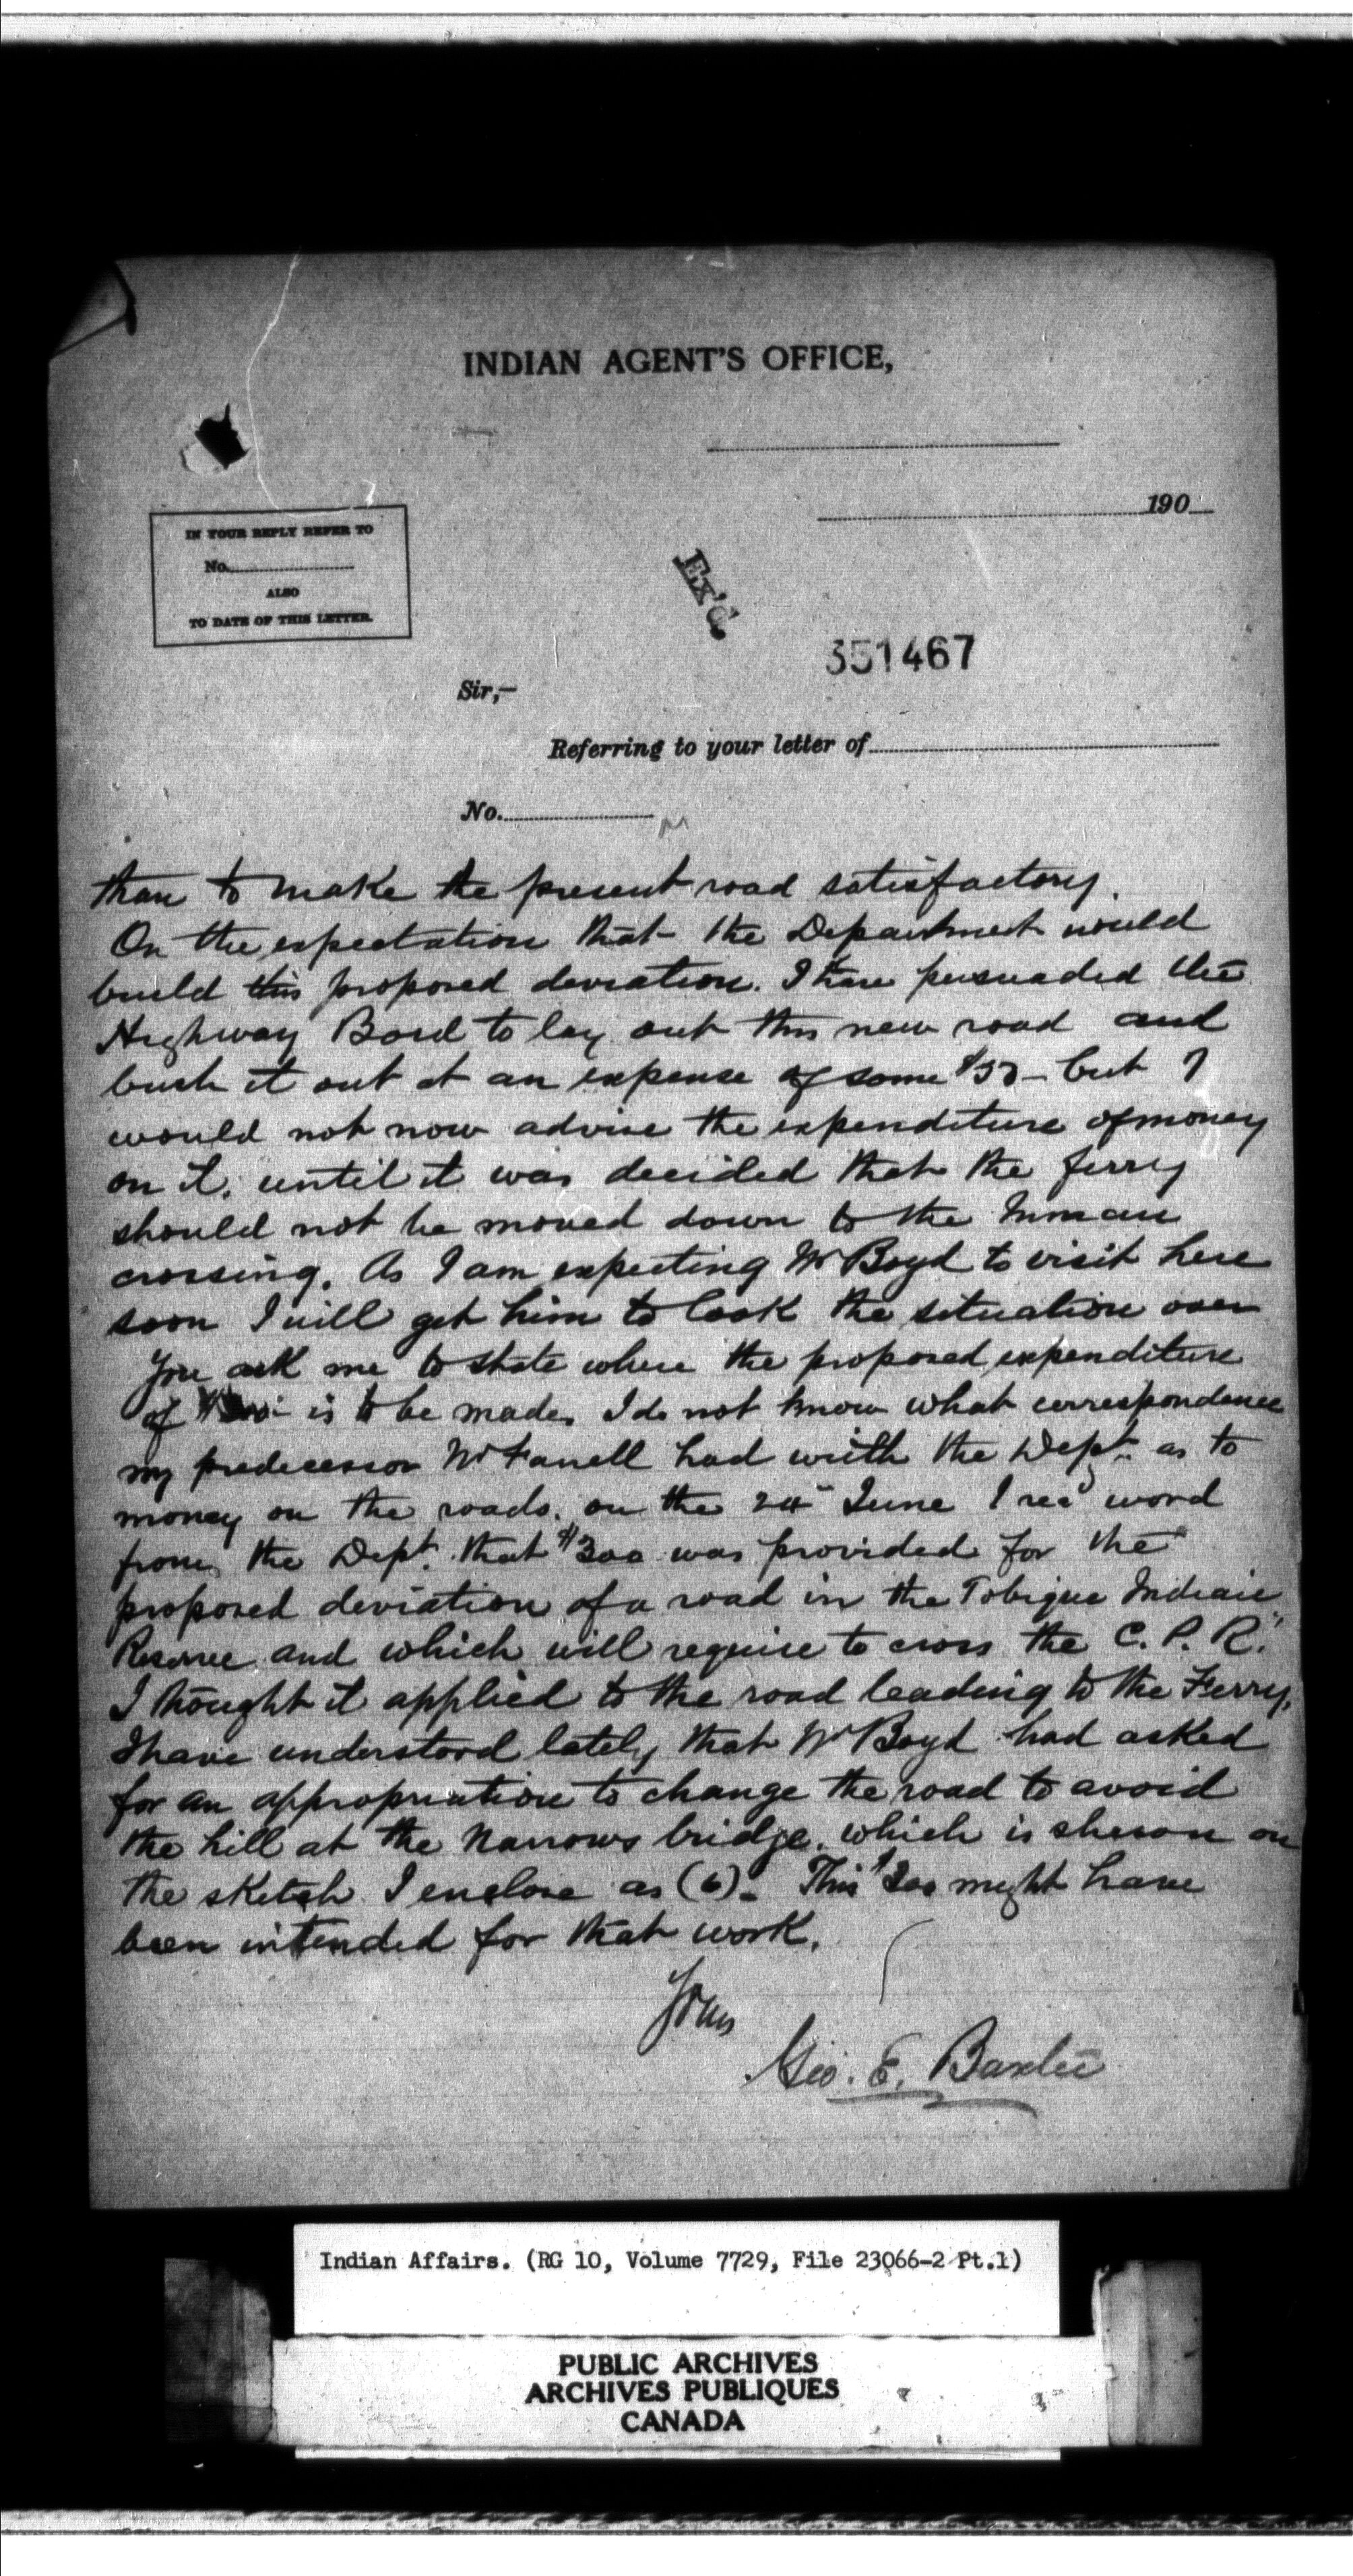 INDIAN AGENT'S OFFICE,
190
IN YOUR REPLY REFER TO
No.
ALSO
TO DATE OF THIS LETTER.
Ex'd
351467
Sir,—
Referring to your letter of
No.
than to make the present road satisfactory.
On the expectation that the Department would
build this proposed deviation. I have persuaded the
Highway Bord to lay out this new road and
bush it out at an expense of some $50– but I
would not now advise the expenditure of money
on it, until it was decided that the ferry
should not be moved down to the Inman
crossing. As I am expecting Mr Boyd to visit here
soon I will get him to look the situation over
You ask me to state where the proposed expenditure
of is to be made, I do not know what correspondence
my predecessor Mr Farrell had with the Dept. as to
money on the roads. on the 24th June I recd word
from the Dept. that $300 was provided for the
proposed deviation of a road in the Tobique Indian
Reserve and which will require to cross the C. P. R."
I thought it applied to the road leading to the Ferry,
I have understood lately that Mr Boyd had asked
for an appropriation to change the road to avoid
the hill at the Narrows bridge, which is shewn on
the sketch I enclose as (6). This $300 might have
been intended for that work.
Yours
Geo. E. Baxter
Indian Affairs. (RG 10, Volume 7729, File 23066-2 Pt.1)
PUBLIC ARCHIVES
ARCHIVES PUBLIQUES
CANADA